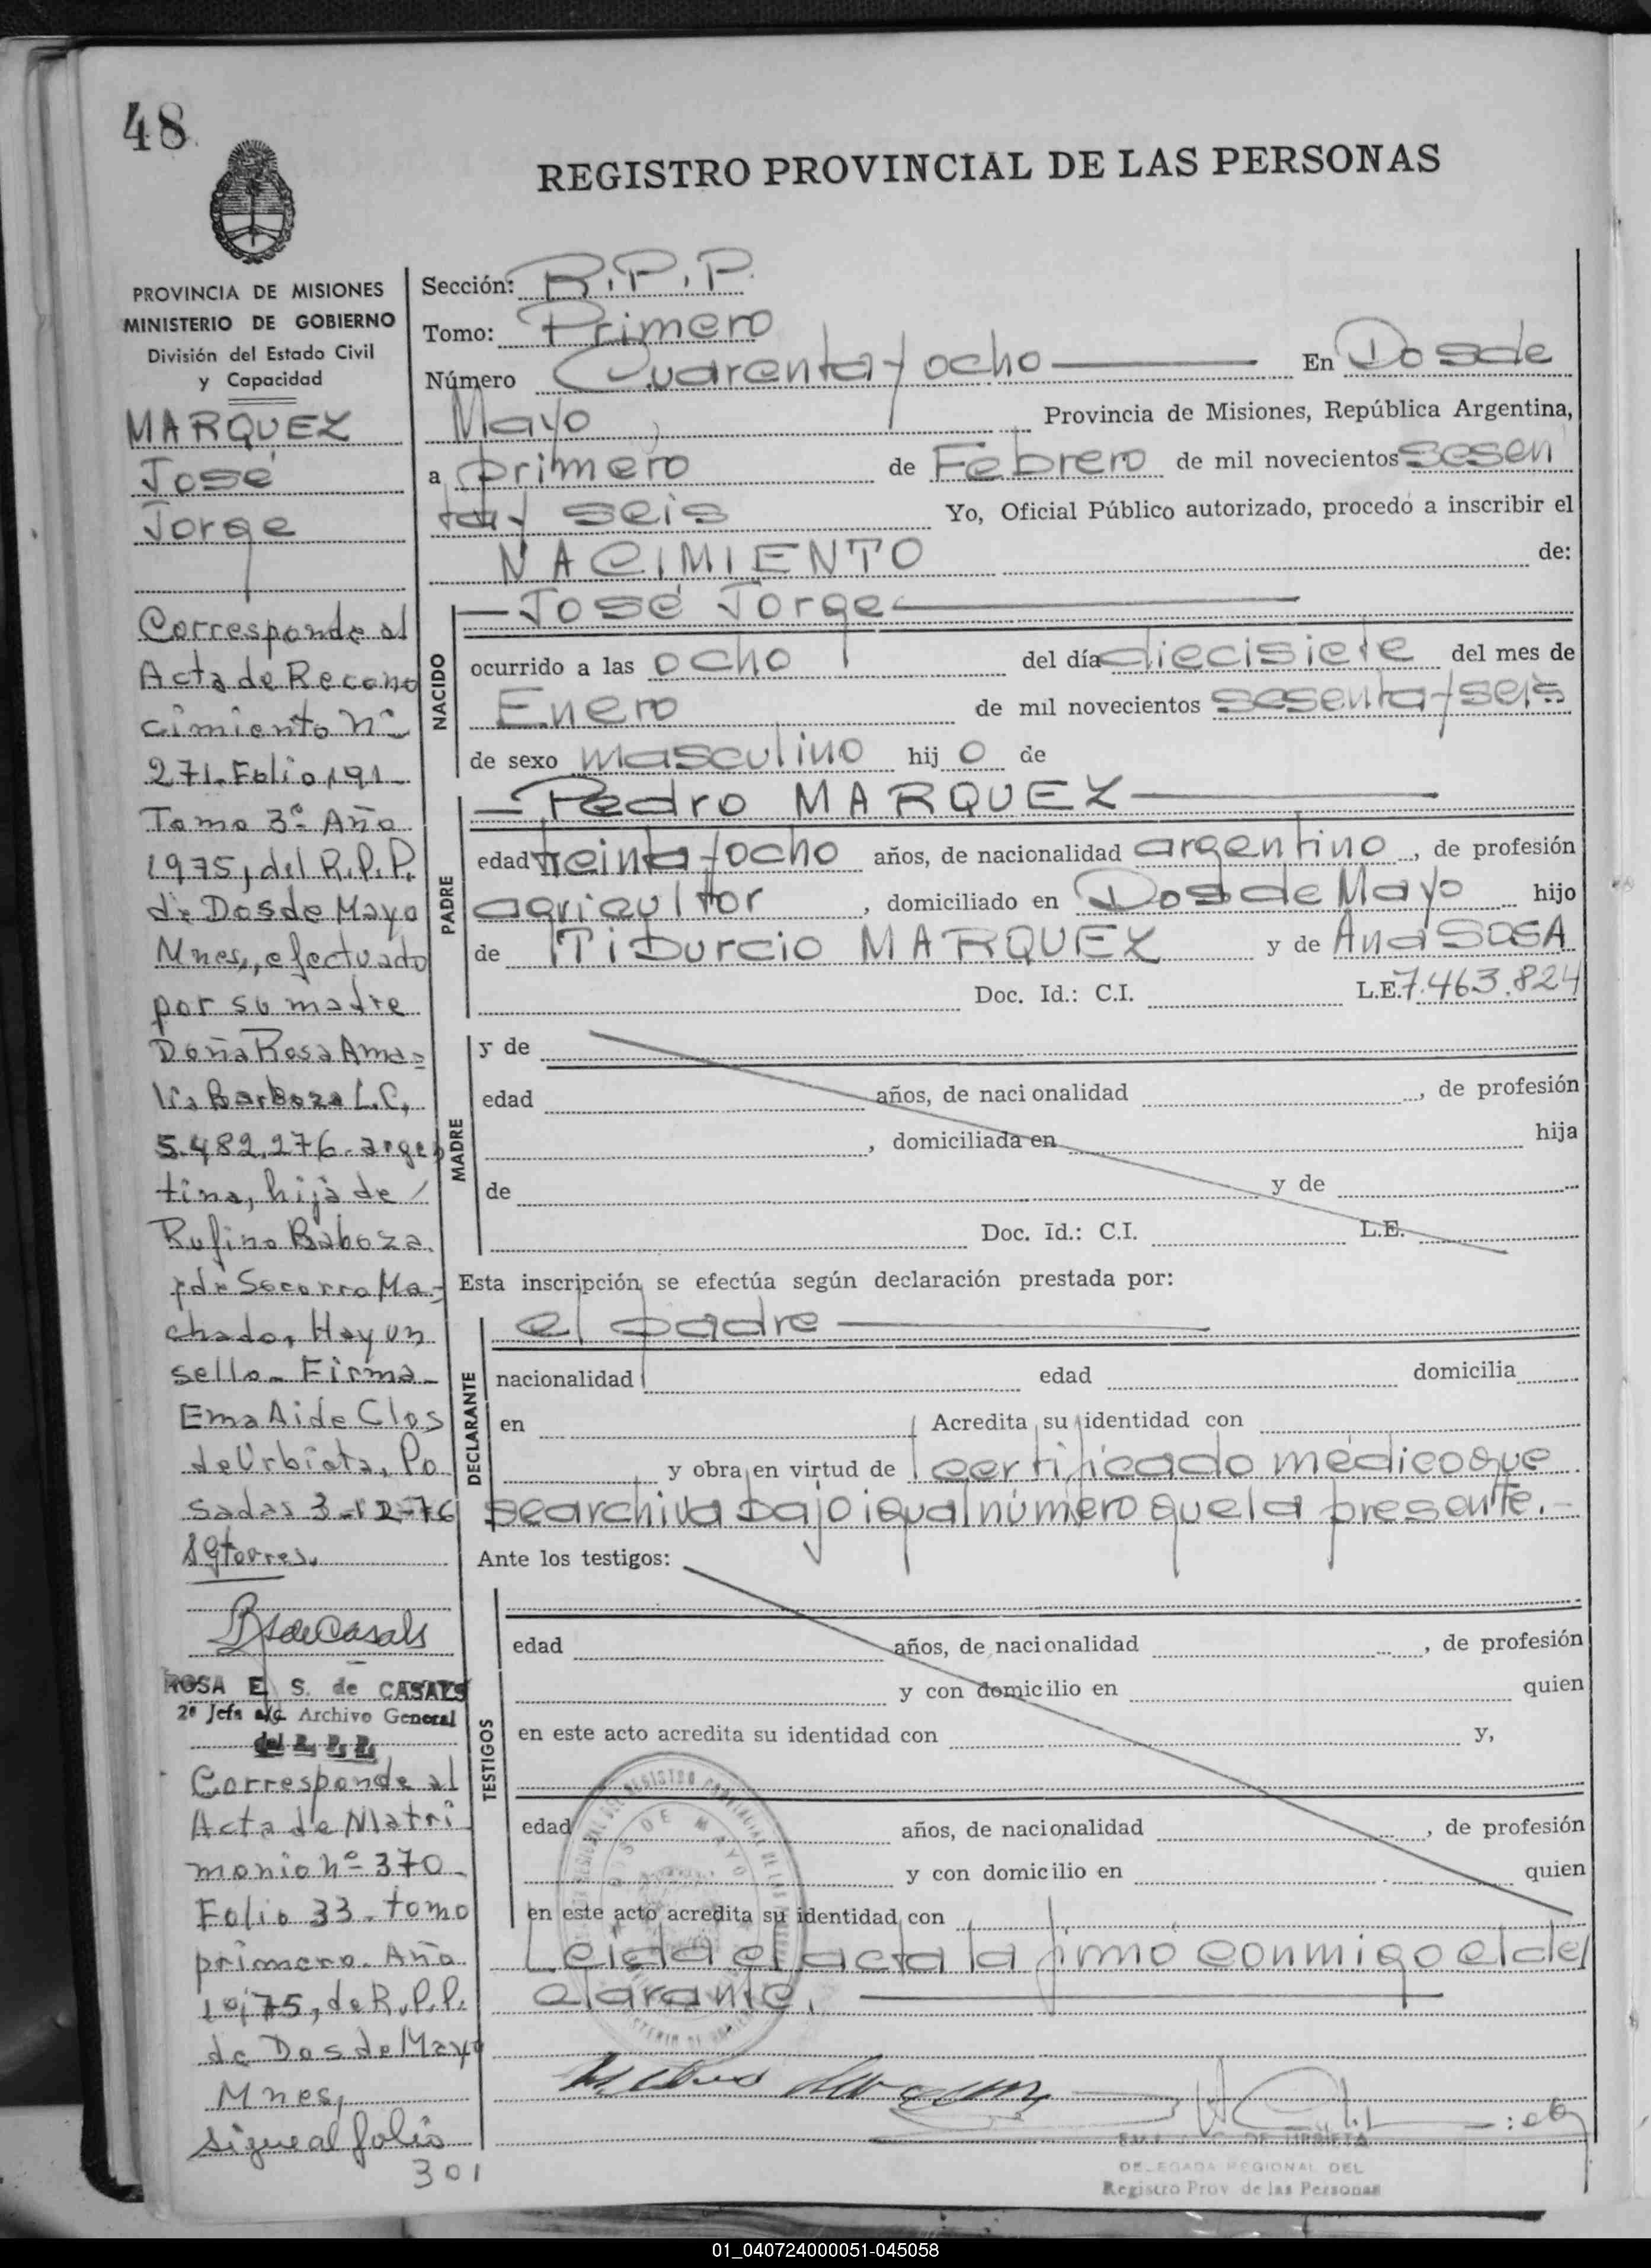 48
REGISTRO PROVINCIAL DE LAS PERSONAS
PROVINCIA DE MISIONES
MINISTERIO DE GOBIERNO
División del Estado Civil
y Capacidad
MARQUEZ
José
Jorge
Corresponde al
Acta de Recono
cimiento nº
271. Folio 191
Tomo 3º Año
1975, del R.P.P.
de Dos de Mayo
Mnes, efectuado
por su madre
Doña Rosa Ama=
lia Barboza L.C.
5.482.276. argen
tina, hija de
Rufino Baboza
y de Socorro Ma=
chado, Hay un
sello. Firma
Ema Aide Clos
de Urbieta, Po
sadas 3-12-76
SGtorres.
BSdeCasals
ROSA E. S. de CASALS
2º Jefa a/c. Archivo General
del R. P. P.
Corresponde al
Acta de Matri
monio nº 370
Folio 33. tomo
primero. Año
1975, de R.P.P.
de Dos de Mayo
Mnes,
sigue al folio
301
Sección: R.P.P.
Tomo: Primero
Número Cuarenta y ocho En Dos de
Mayo Provincia de Misiones, República Argentina,
a primero de Febrero de mil novecientos sesen
ta y seis Yo, Oficial Público autorizado, procedo a inscribir el
NACIMIENTO de:
NACIDO
José Jorge
ocurrido a las ocho del día diecisiete del mes de
Enero de mil novecientos sesenta y seis
de sexo masculino hijo de
PADRE
Pedro MARQUEZ
edad treinta y ocho años, de nacionalidad argentino, de profesión
agricultor, domiciliado en Dos de Mayo hijo
de Tiburcio MARQUEZ y de Ana SOSA
Doc. Id.: C.I. L.E. 7.463.824
MADRE
y de
edad años, de nacionalidad , de profesión
, domiciliada en hija
de y de
Doc. Id.: C.I. L.E.
Esta inscripción se efectúa según declaración prestada por:
DECLARANTE
el padre
nacionalidad edad domicilia
en Acredita su identidad con
y obra en virtud de certificado médico que
se archiva bajo igual número que la presente.
Ante los testigos:
TESTIGOS
edad años, de nacionalidad , de profesión
y con domicilio en quien
en este acto acredita su identidad con y,
edad años, de nacionalidad , de profesión
y con domicilio en quien
en este acto acredita su identidad con
Leída el acta la firmó conmigo el de
clarante.
DOS DE MAYO
DE URBIETA
DELEGADA REGIONAL DEL
Registro Prov. de las Personas
01_040724000051-045058